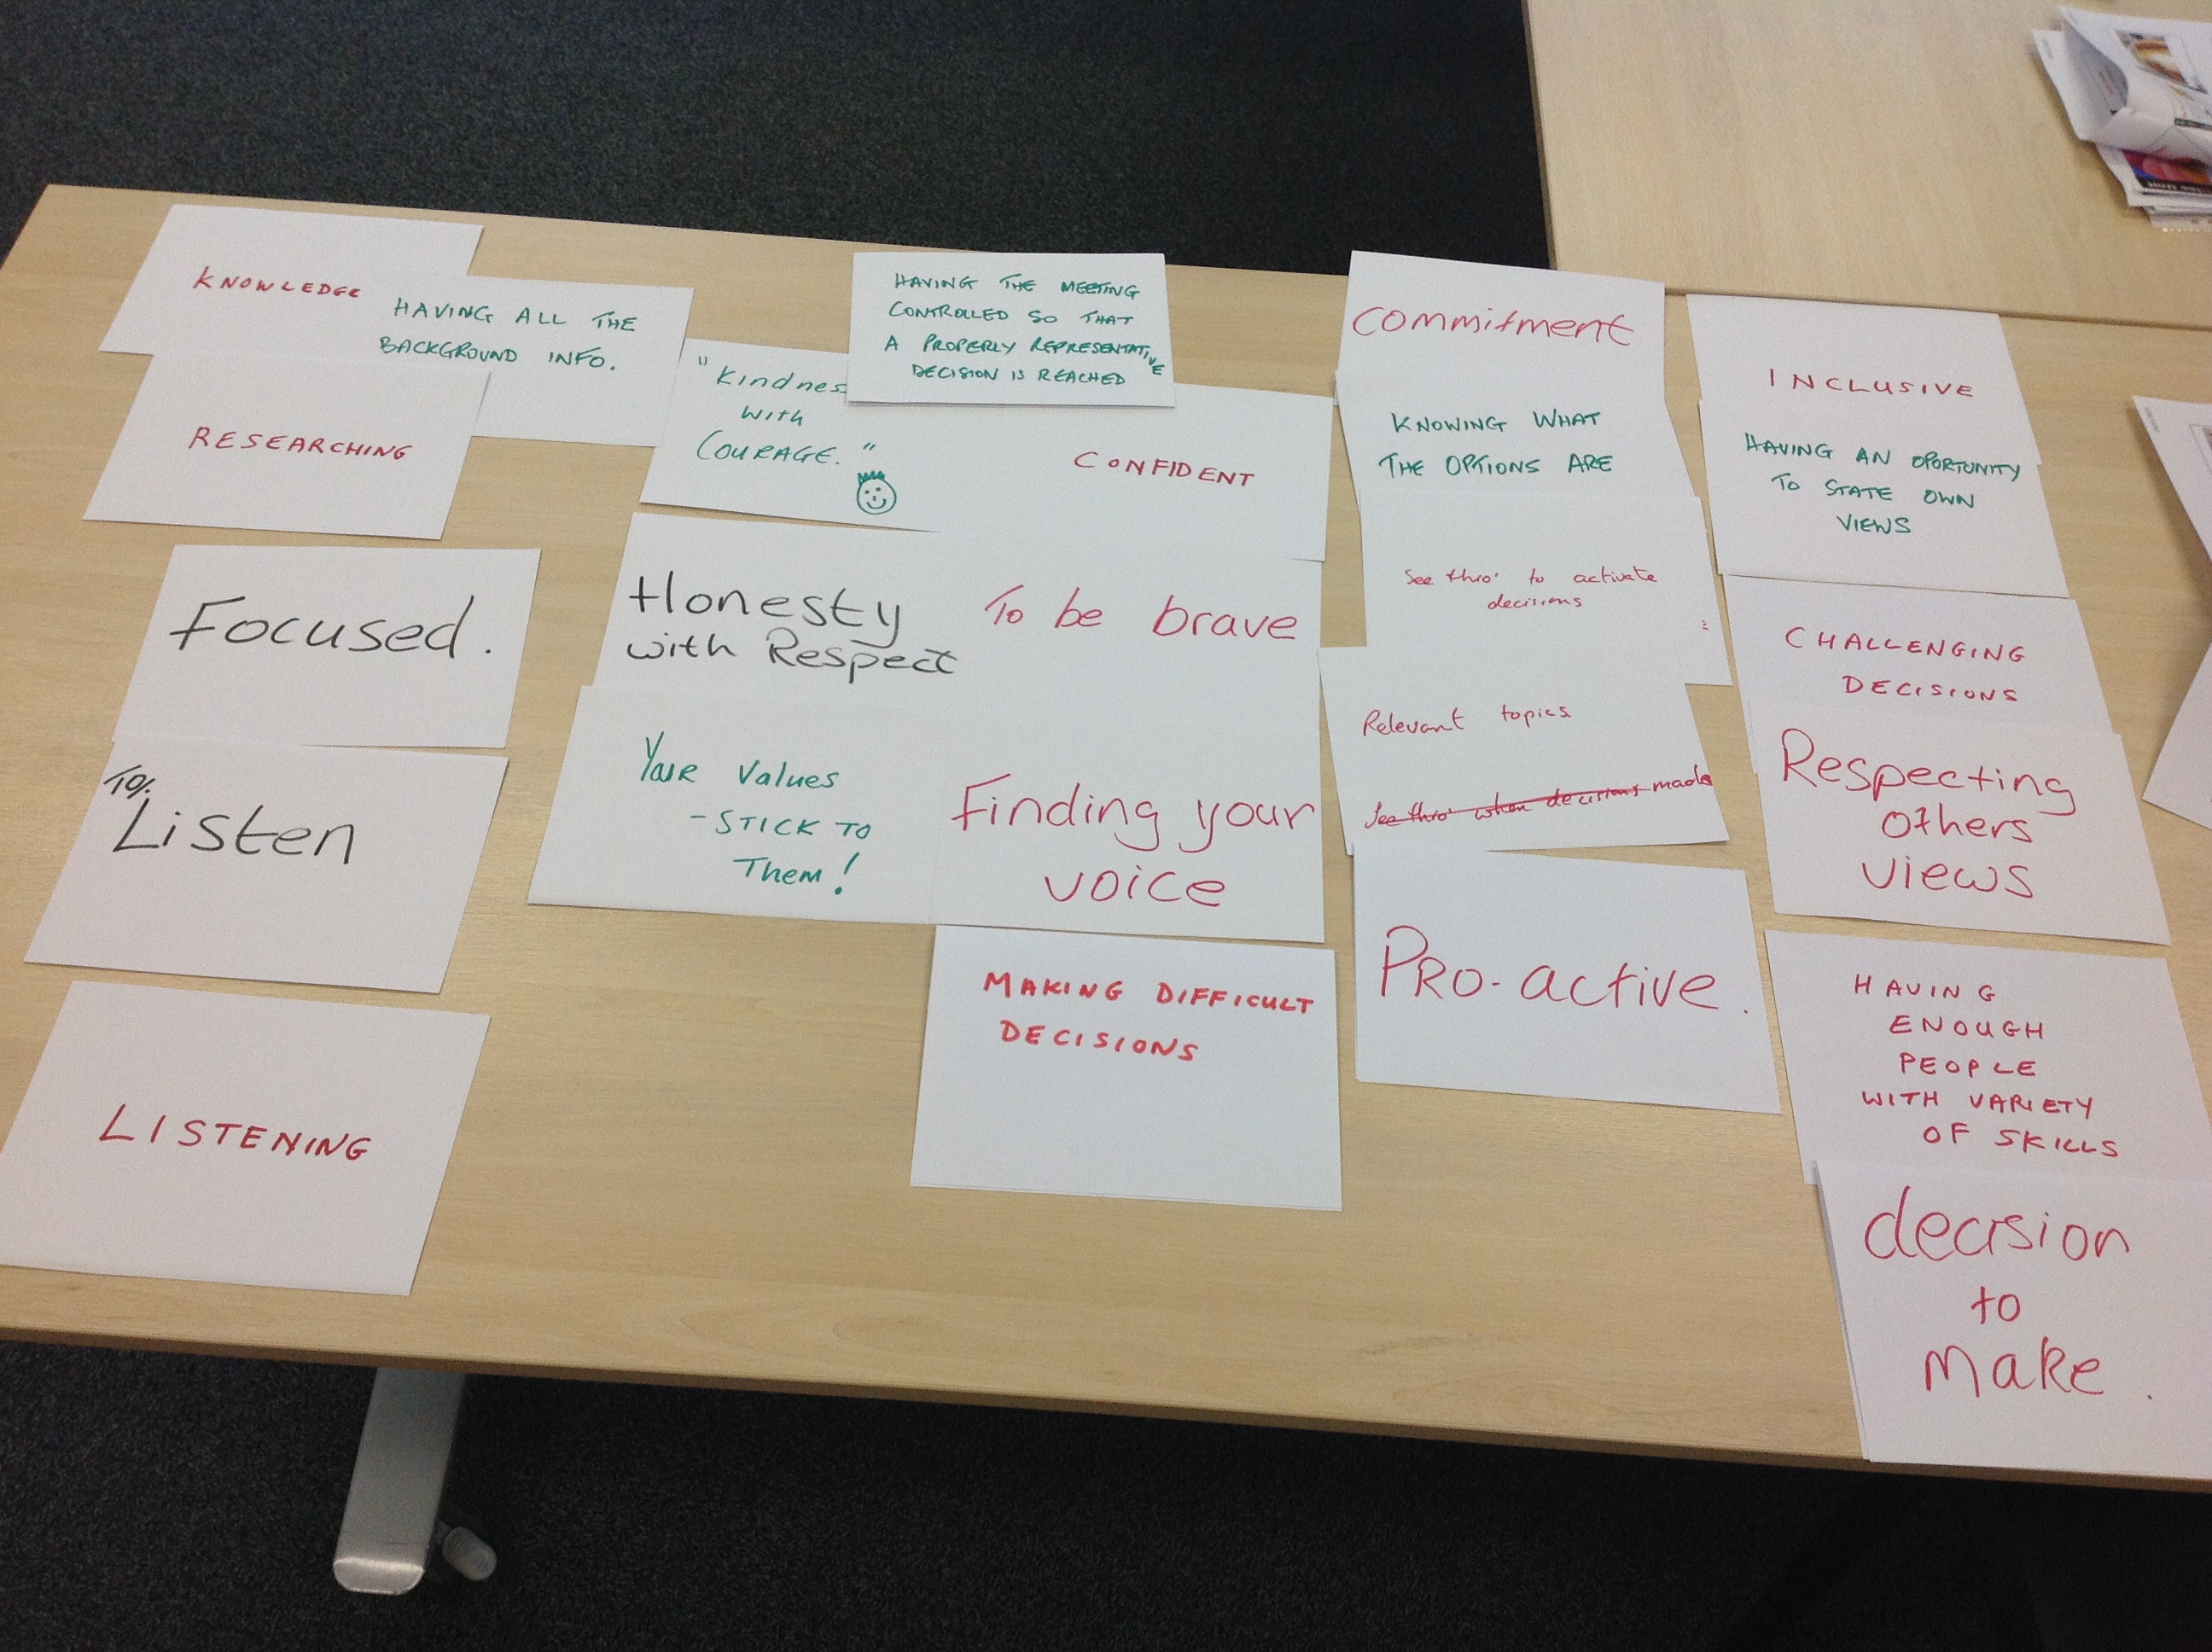 KNOWLEDGE
HAVING ALL THE
BACKGROUND INFO.
RESEARCHING
Focused.
To
Listen
LISTENING
"Kindness
with
COURAGE."
Honesty
with Respect
Your Values
- STICK TO
Them!
HAVING THE MEETING
CONTROLLED SO THAT
A PROPERLY REPRESENTATIVE
DECISION IS REACHED
CONFIDENT
To be brave
Finding your
voice
MAKING DIFFICULT
DECISIONS
Commitment
KNOWING WHAT
THE OPTIONS ARE
See thro' to activate
decisions
Relevant topics
See thro' when decisions made
PRO-active.
INCLUSIVE
HAVING AN OPORTUNITY
TO STATE OWN
VIEWS
CHALLENGING
DECISIONS
Respecting
others
views
HAVING
ENOUGH
PEOPLE
WITH VARIETY
OF SKILLS
decision
to
make.